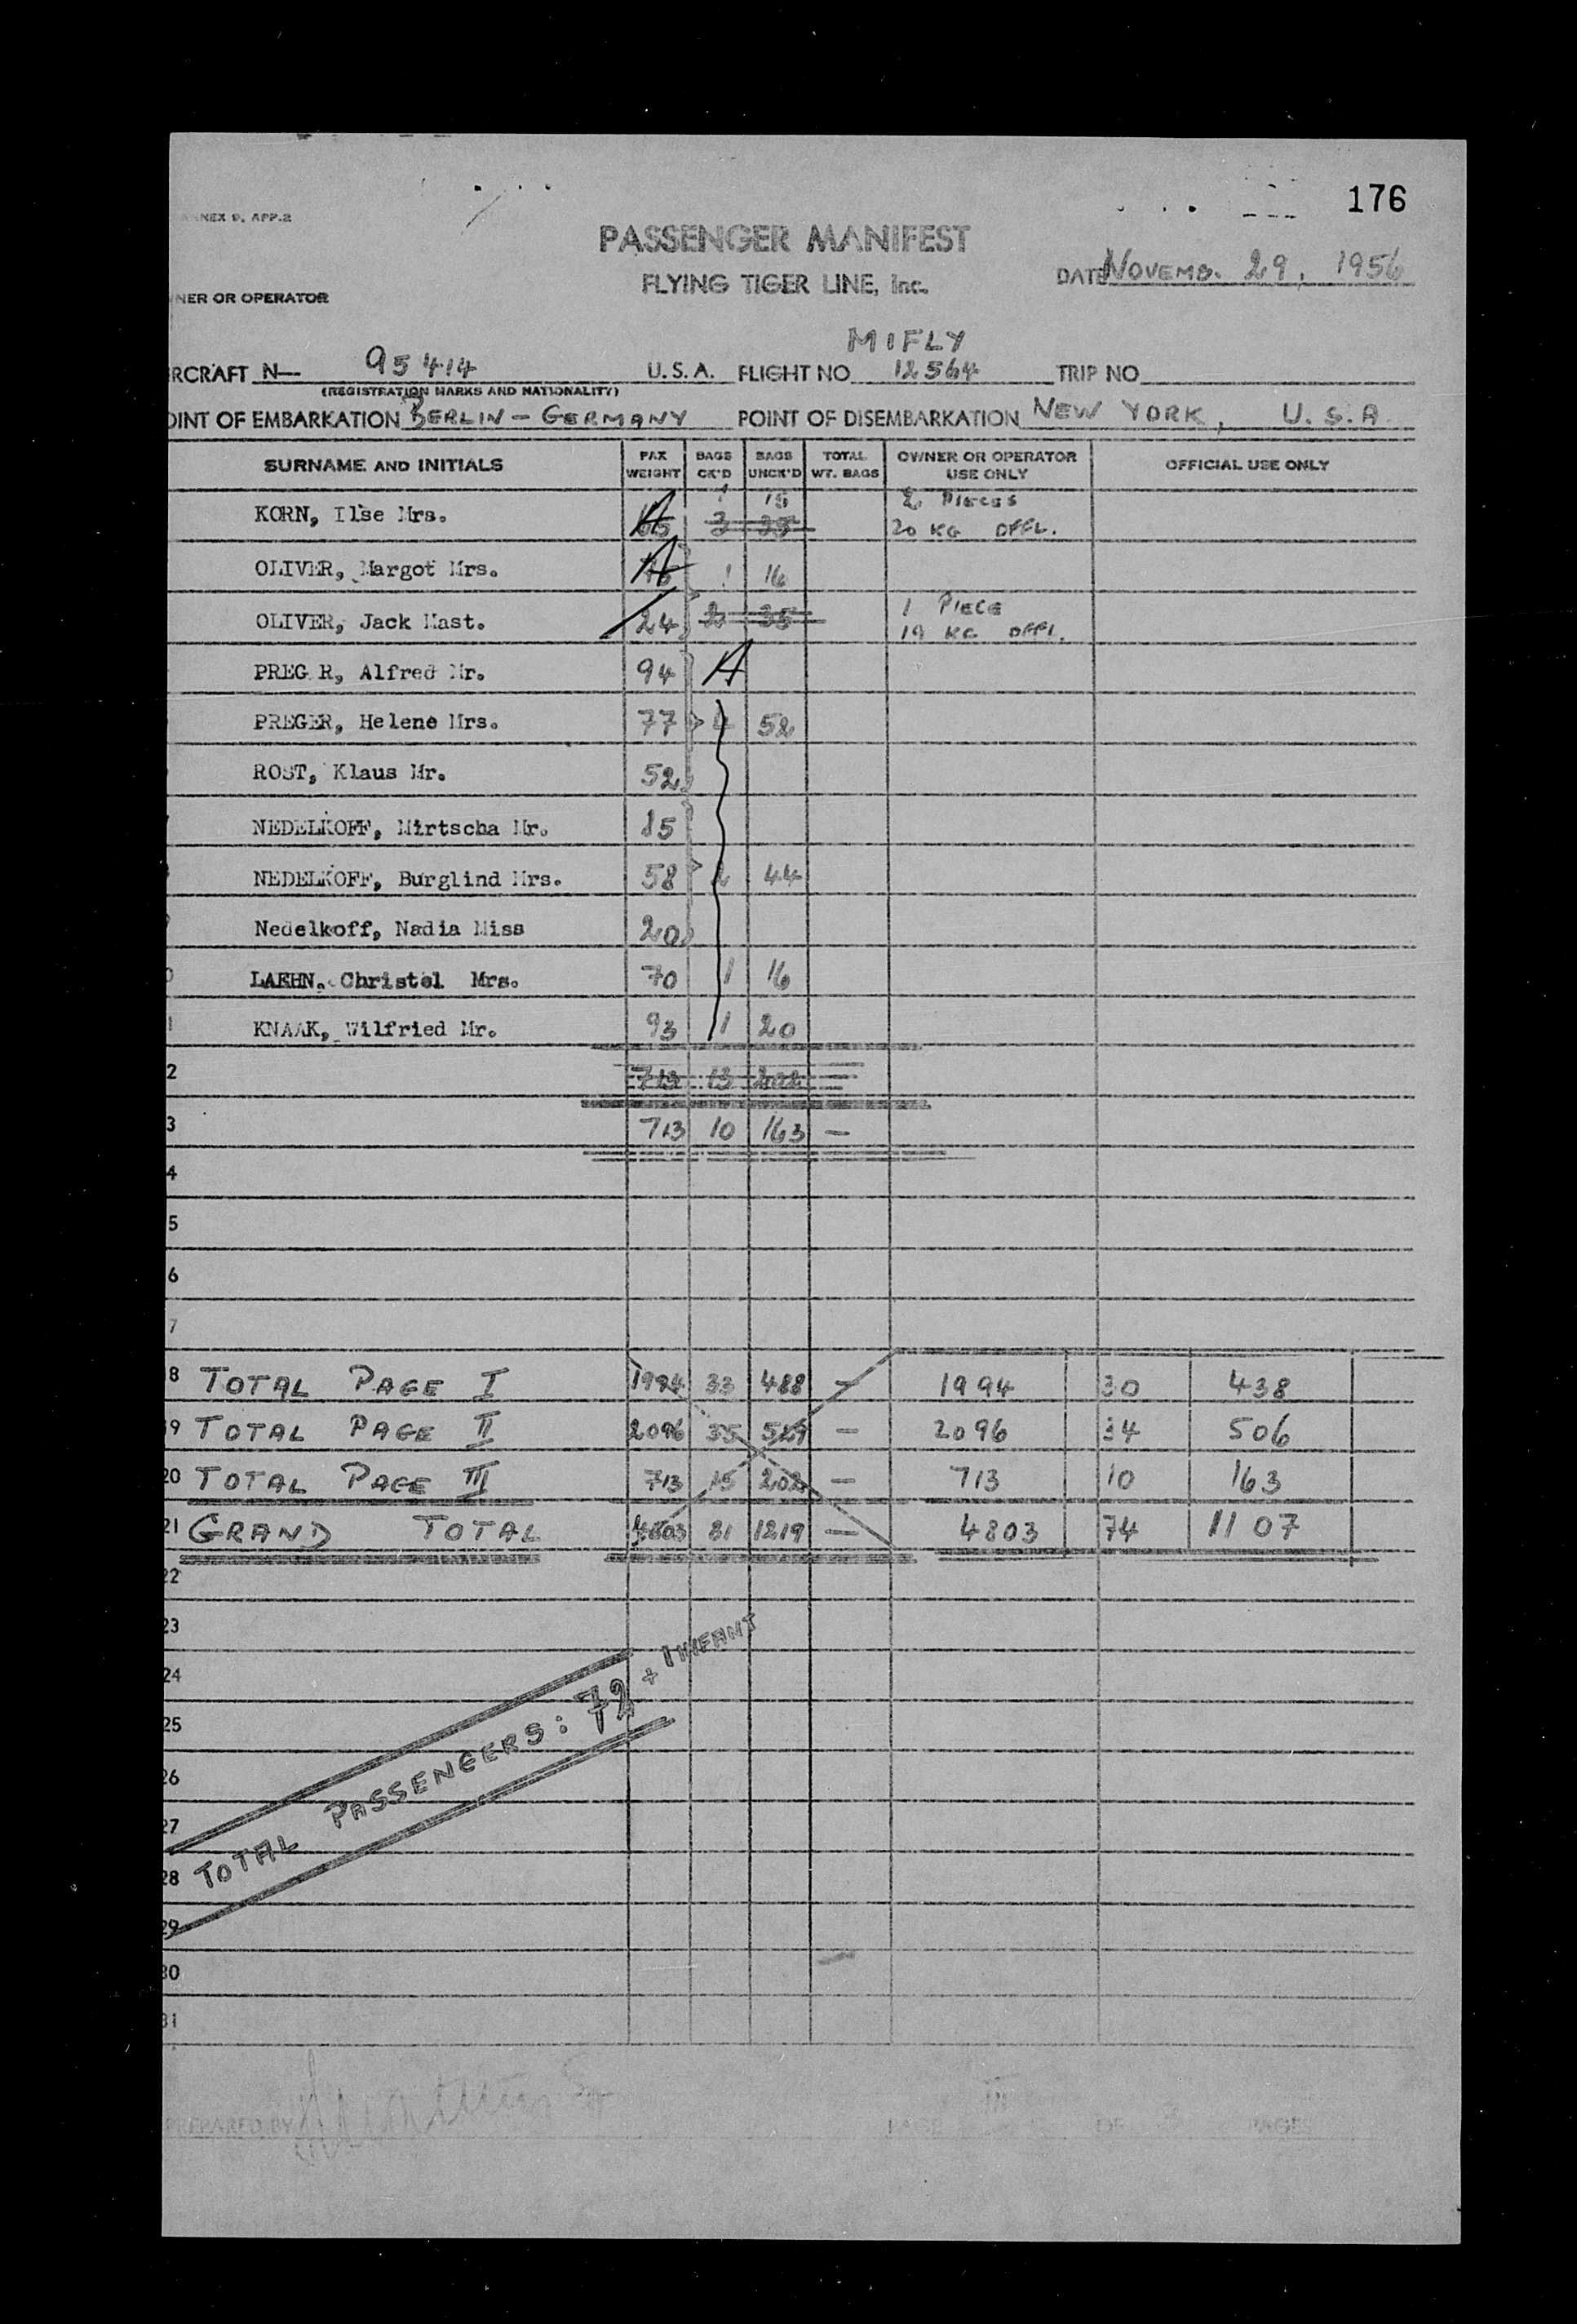 176
NEX 9, APP.2
PASSENGER MANIFEST
FLYING TIGER LINE, Inc.
DATE NOVEMB. 29, 1956
NER OR OPERATOR
MIFLY
RCRAFT N— 95414 U.S.A. FLIGHT NO 12564 TRIP NO
(REGISTRATION MARKS AND NATIONALITY)
OINT OF EMBARKATION BERLIN - GERMANY POINT OF DISEMBARKATION NEW YORK, U.S.A.
SURNAME AND INITIALS PAX WEIGHT BAGS CK'D BAGS UNCK'D TOTAL WT. BAGS OWNER OR OPERATOR USE ONLY OFFICIAL USE ONLY
1 15 2 PIECES
KORN, Ilse Mrs. 65 3 35 20 KG OFFL.
OLIVER, Margot Mrs. 1 16
OLIVER, Jack Mast. 24 2 35 1 PIECE
19 KG OFFL.
PREG R, Alfred Mr. 94
PREGER, Helene Mrs. 77 4 52
ROST, Klaus Mr. 52
NEDELKOFF, Mirtscha Mr. 85
NEDELKOFF, Burglind Mrs. 58 2 44
Nedelkoff, Nadia Miss 20
0 LAEHN, Christel Mrs. 70 1 16
1 KNAAK, Wilfried Mr. 93 1 20
2 713 13 202 —
3 713 10 163 —
4
5
6
7
8 TOTAL PAGE I 1994 33 488 — 1994 30 438
19 TOTAL PAGE II 2096 35 529 — 2096 34 506
20 TOTAL PAGE III 713 13 202 — 713 10 163
21 GRAND TOTAL 4803 81 1219 — 4803 74 1107
22
23
24
25
26
27
28
29
30
31
TOTAL PASSENGERS: 72 + 1 INFANT
PREPARED BY PAGE III OF 3 PAGES